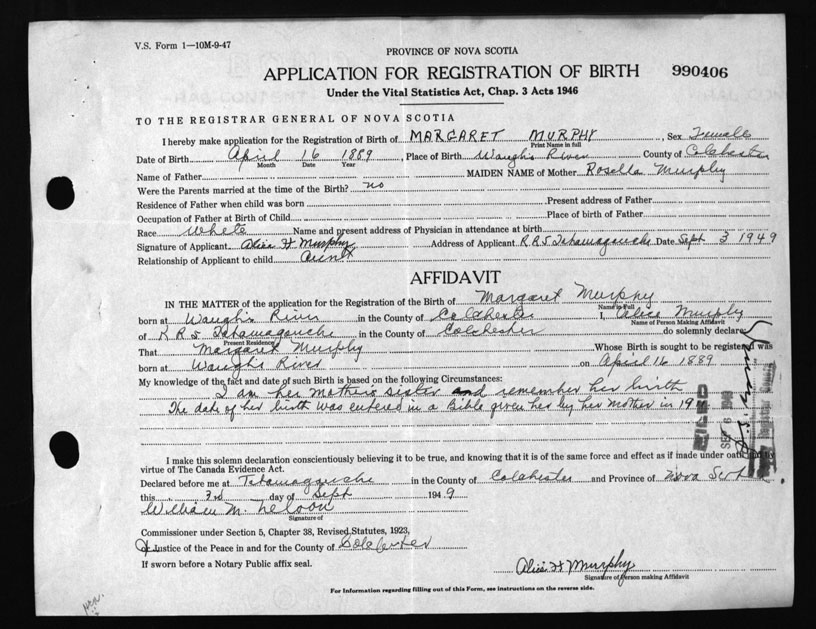 V.S. Form 1—10M-9-47
PROVINCE OF NOVA SCOTIA
APPLICATION FOR REGISTRATION OF BIRTH 990406
Under the Vital Statistics Act, Chap. 3 Acts 1946
TO THE REGISTRAR GENERAL OF NOVA SCOTIA
I hereby make application for the Registration of Birth of MARGARET MURPHY, Sex Female
Print Name in full
Date of Birth April 16 1889, Place of Birth Waugh's River County of Colchester
Month Date Year
Name of Father MAIDEN NAME of Mother Rosella Murphy
Were the Parents married at the time of the Birth? no
Residence of Father when child was born Present address of Father
Occupation of Father at Birth of Child Place of birth of Father
Race White Name and present address of Physician in attendance at birth
Signature of Applicant Alice H Murphy Address of Applicant R.R.5 Tatamagouche Date Sept 3 1949
Relationship of Applicant to child Aunt
AFFIDAVIT
IN THE MATTER of the application for the Registration of the Birth of Margaret Murphy
Name in Full
born at Waugh's River in the County of Colchester I, Alice Murphy
Name of Person Making Affidavit
of R R 5 Tatamagouche in the County of Colchester do solemnly declare
Present Residence
That Margaret Murphy Whose Birth is sought to be registered was
born at Waugh's River on April 16 1889
My knowledge of the fact and date of such Birth is based on the following Circumstances:
I am her mothers sister and remember her birth
The date of her birth was entered in a Bible given her by her mother in 19
FILED
SEP 6
I make this solemn declaration conscientiously believing it to be true, and knowing that it is of the same force and effect as if made under oath and by
virtue of The Canada Evidence Act.
Declared before me at Tatamagouche in the County of Colchester and Province of Nova Scotia
this 3rd day of Sept 1949
William M. Nelson
Signature of
Commissioner under Section 5, Chapter 38, Revised Statutes, 1923,
Justice of the Peace in and for the County of Colchester
If sworn before a Notary Public affix seal.
Alice H Murphy
Signature of Person making Affidavit
For Information regarding filling out of this Form, see instructions on the reverse side.